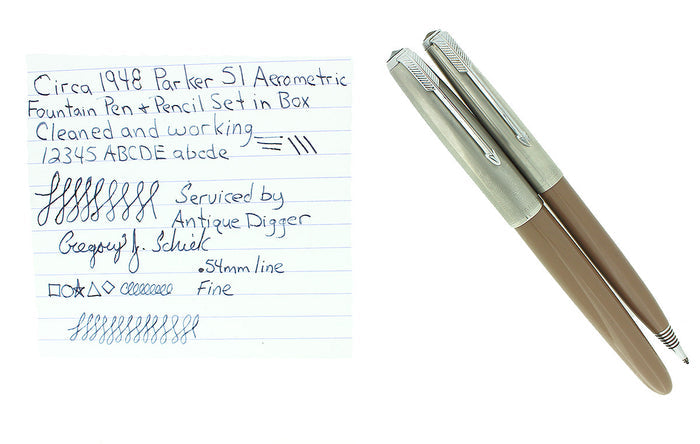 Circa 1948 Parker 51 Aerometric
Fountain Pen + Pencil Set in Box
Cleaned and working
12345 ABCDE abcde
Serviced by
Antique Digger
Gregory J. Schiek
.54mm line
Fine